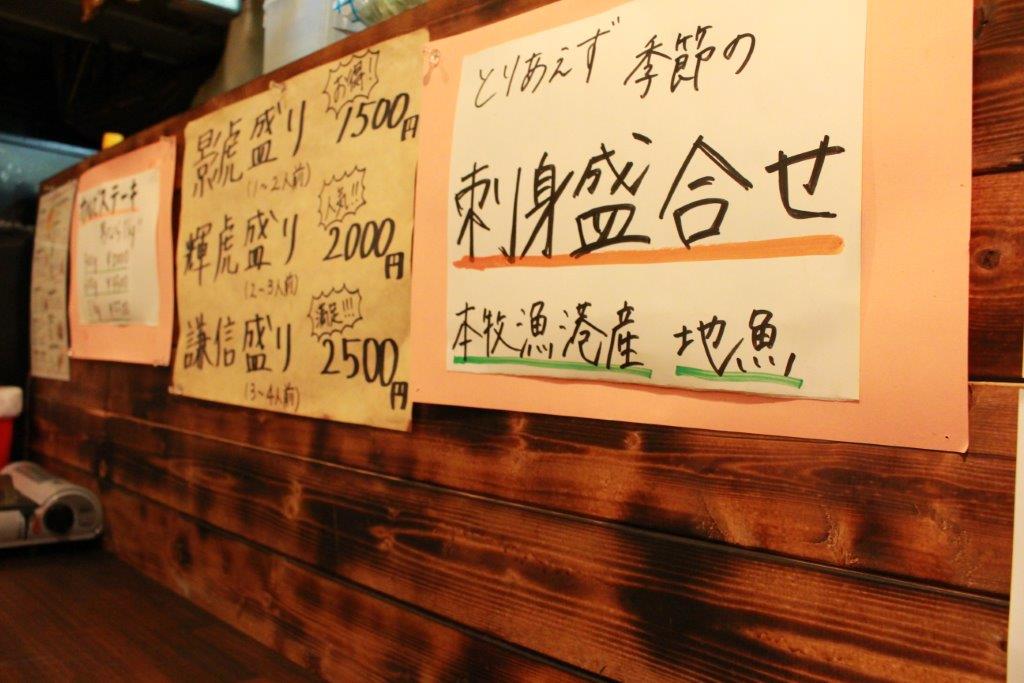 とりあえず 季節の
刺身盛合せ
本牧漁港産 地魚
景虎盛り お得! 1500円
(1〜2人前)
輝虎盛り 人気!! 2000円
(2〜3人前)
謙信盛り 満足!!! 2500円
(3〜4人前)
ステーキ